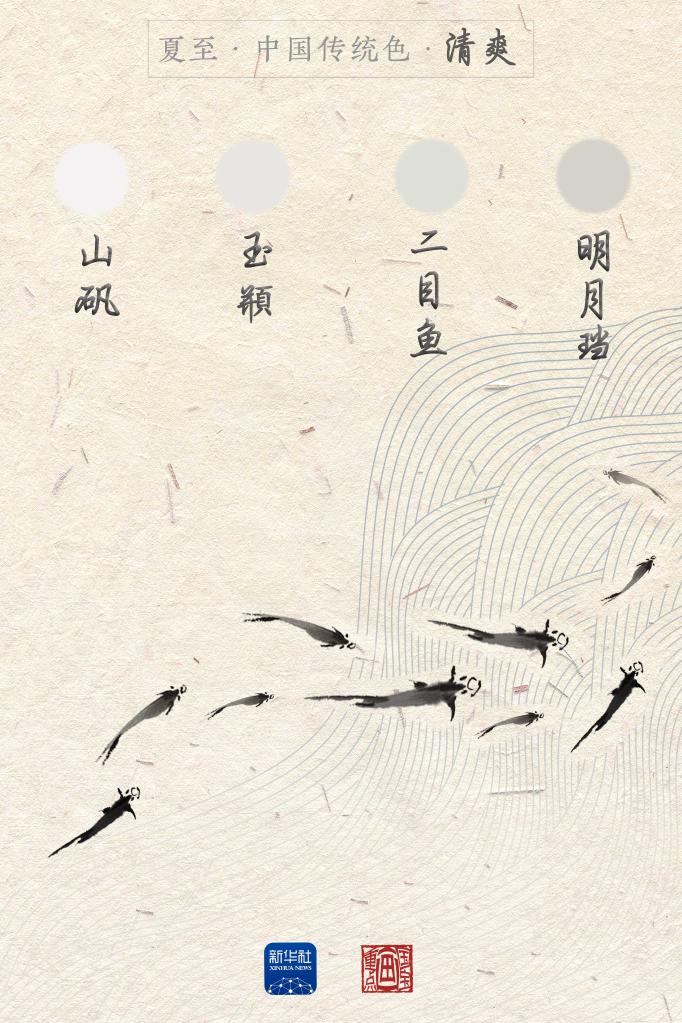 夏至·中国传统色·清爽
山矾
玉頩
二目鱼
明月珰
新华社
XINHUA NEWS